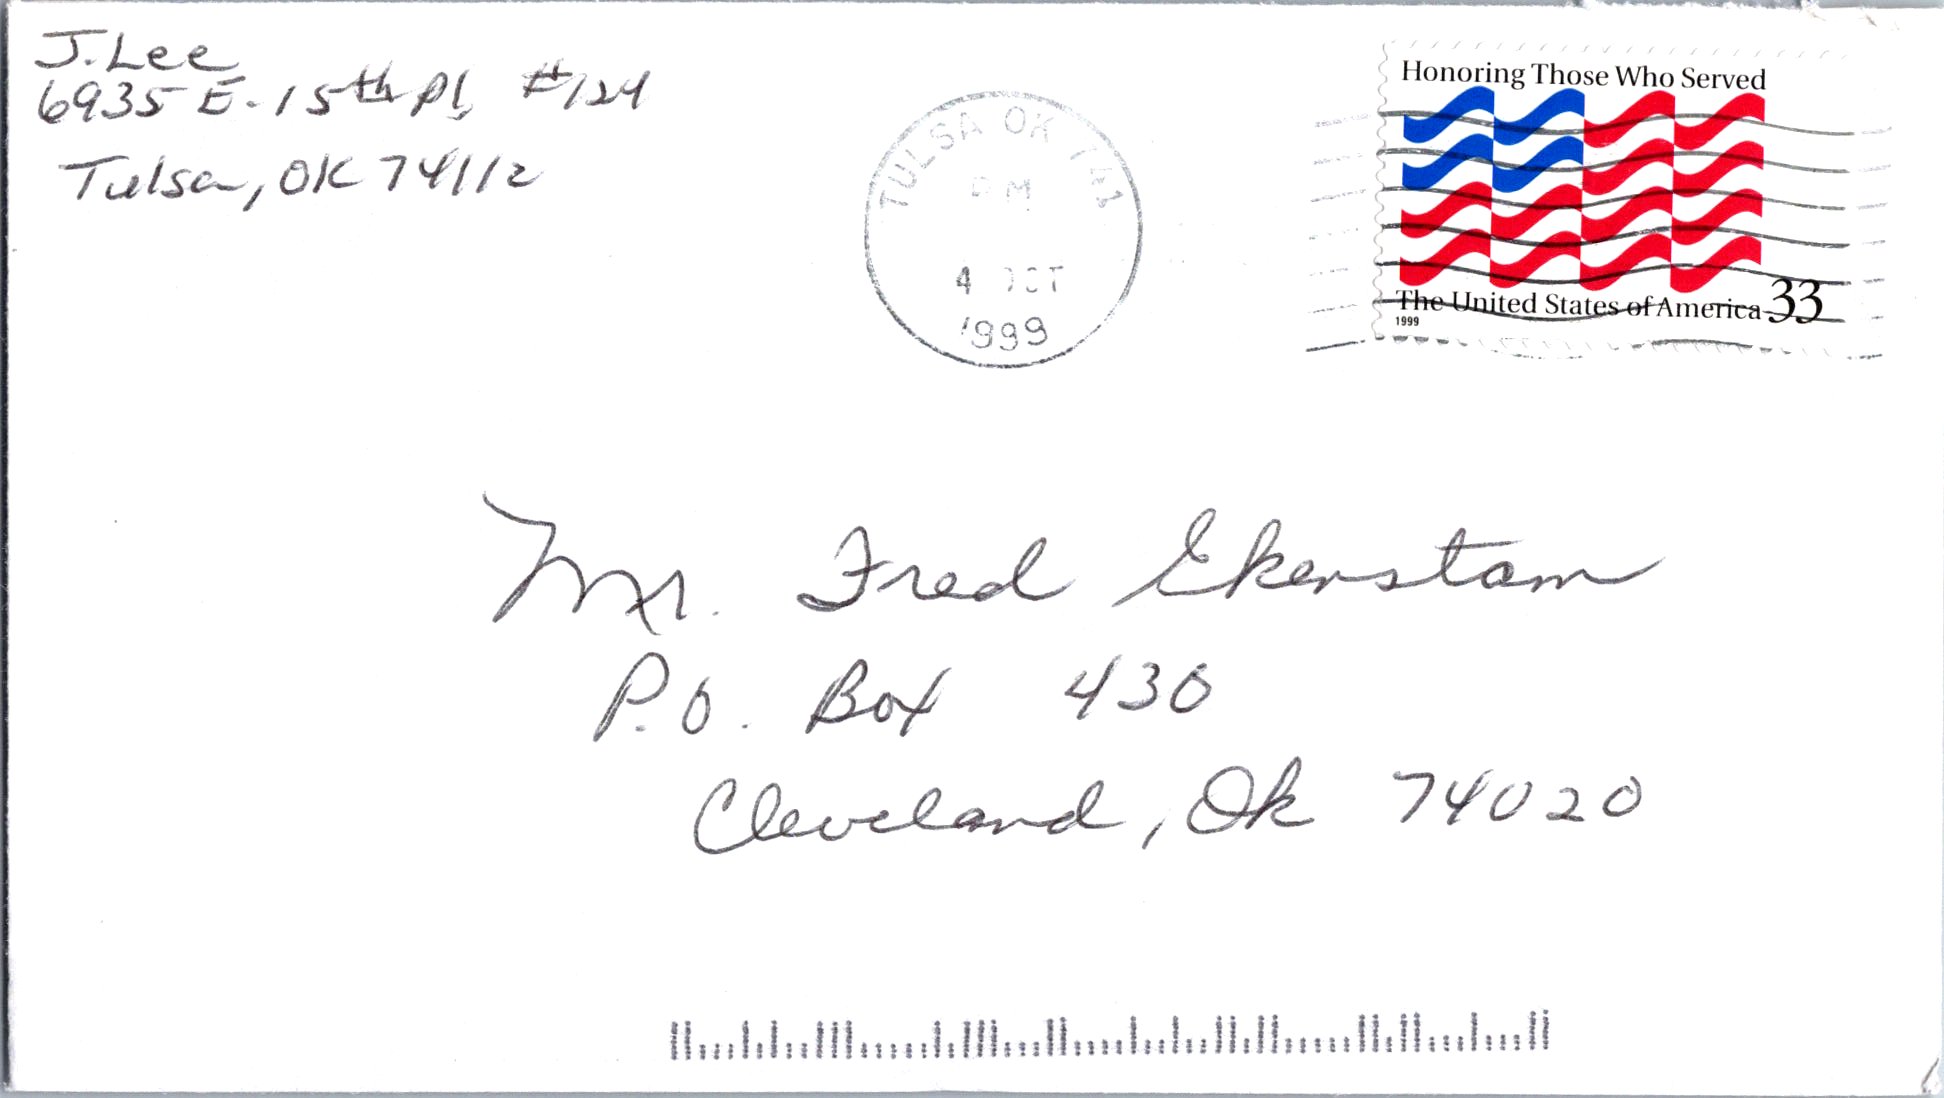 J. Lee
6935 E. 15th Pl #124
Tulsa, OK 74112
TULSA OK 741
PM
4 OCT
1999
Honoring Those Who Served
The United States of America 33
1999
Mr. Fred Ekenstam
P.O. Box 430
Cleveland, Ok 74020